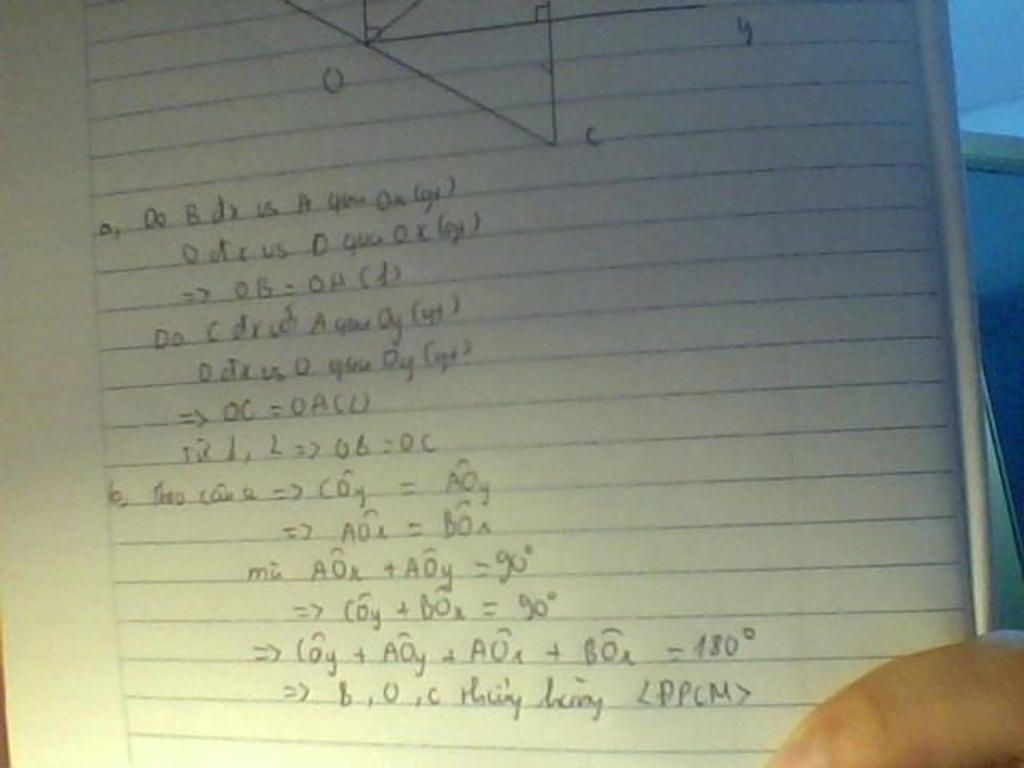 y
O
C
a, Do B đx vs A qua Ox (gt)
O đx vs O qua Ox (gt)
=> OB = OA (1)
Do C đx với A qua Oy (gt)
O đx vs O qua Oy (gt)
=> OC = OA (2)
Từ 1, 2 => OB = OC
b, Theo câu a => CÔy = AÔy
=> AÔx = BÔx
mà AÔx + AÔy = 90°
=> CÔy + BÔx = 90°
=> CÔy + AÔy + AÔx + BÔx = 180°
=> B, O, C thẳng hàng <ĐPCM>